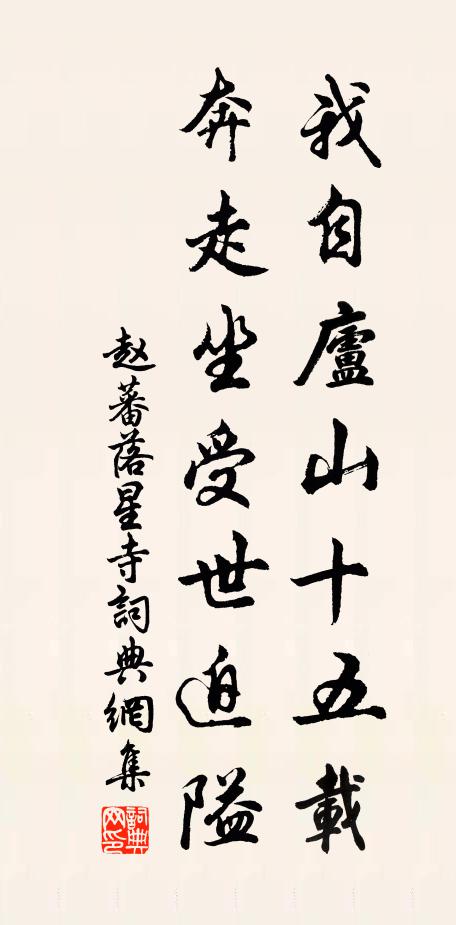 我自廬山十五載
奔走坐受世迫隘
赵蕃落星寺詞典網集
詞典網印